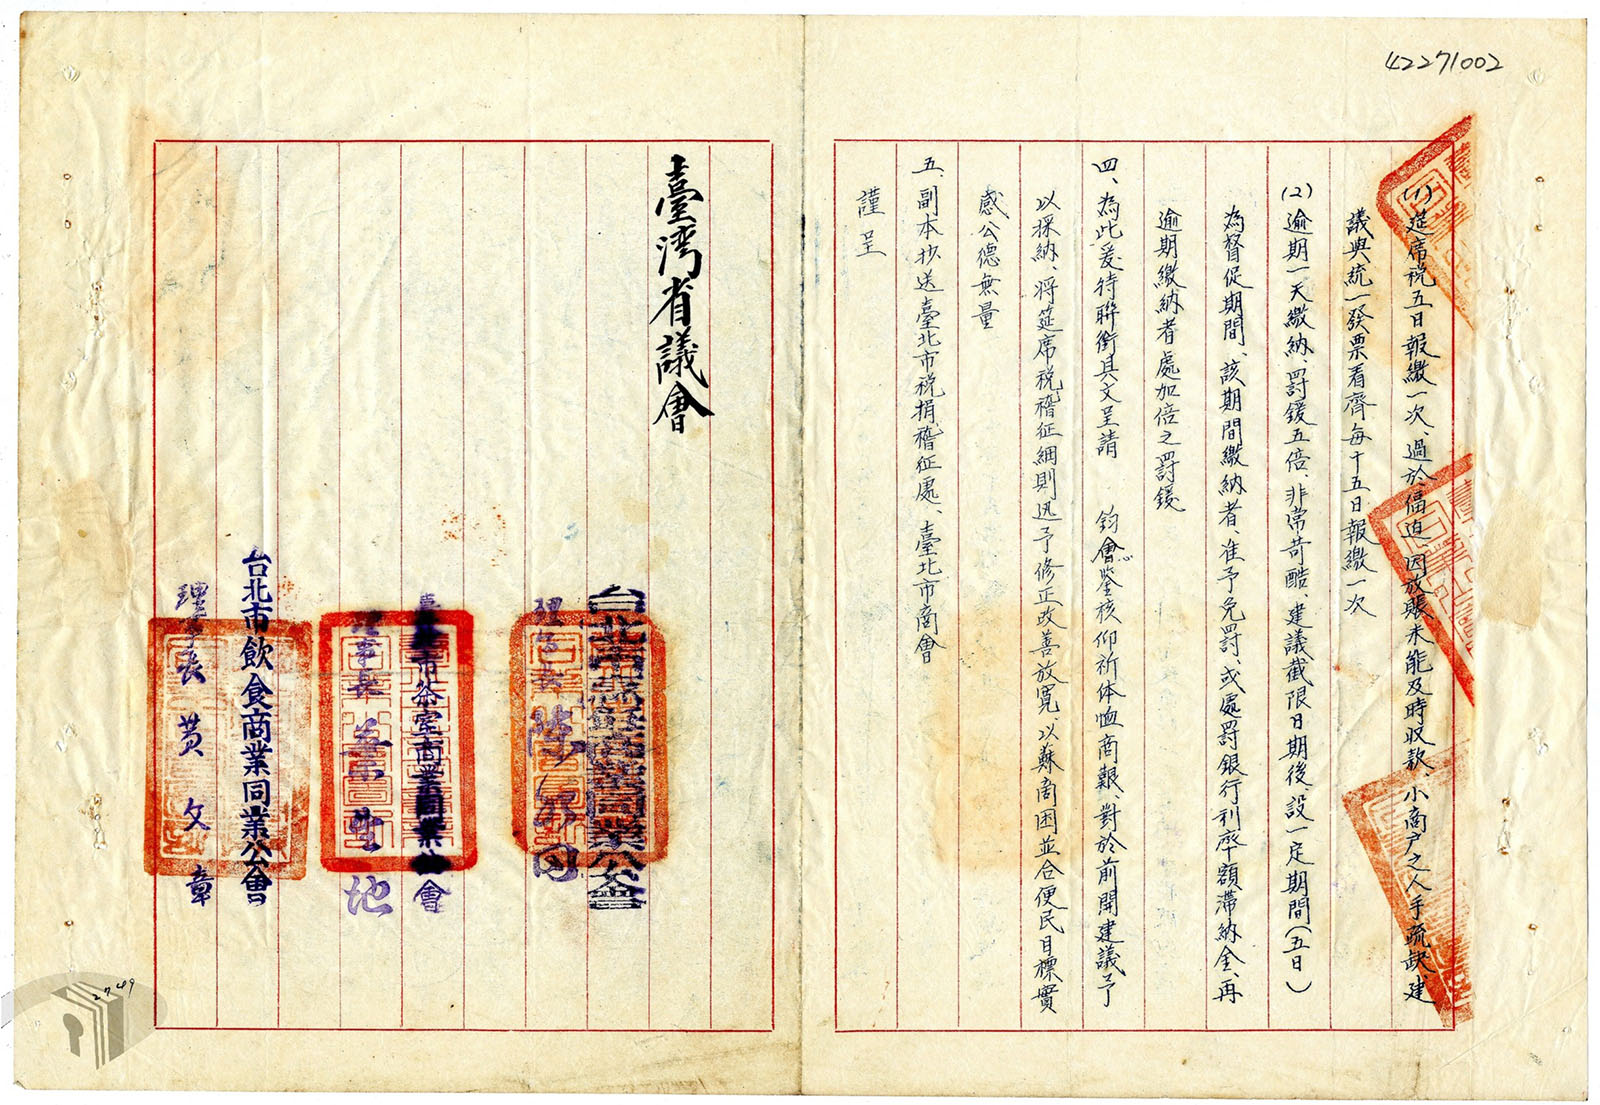 42271002
(1)筵席稅五日報繳一次、過於偪迫、因放賬未能及時收款、小商戶之人手疏缺、建
議與統一發票看齊每十五日報繳一次
(2)逾期一天繳納、罰鍰五倍、非常苛酷、建議截限日期後設一定期間(五日)
為督促期間、該期間繳納者、准予免罰、或處罰銀行利率額滯納金、再
逾期繳納者處加倍之罰鍰
四、為此爰特聯銜具文呈請 鈞會鑒核仰祈体恤商艱、對於前開建議予
以採納、將筵席稅稽征細則迅予修正改善放寬、以蘇商困並合便民目標、實
感公德無量
五、副本抄送臺北市稅捐稽征處、臺北市商會
謹呈
臺湾省議會
台北市 商業同業公會
理事長 陳
市茶室商業同業公會
理事長 地
台北市飲食商業同業公會
理事長 黃文章
2749